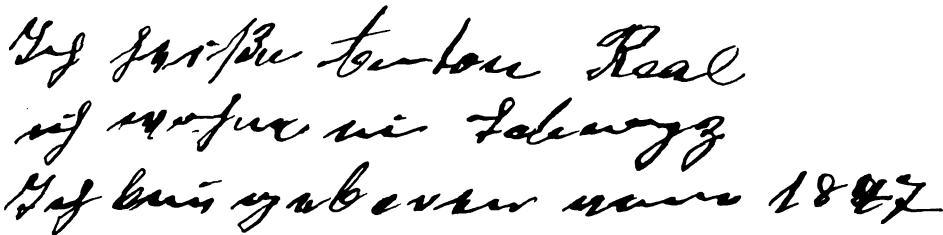 Ich heiße Anton Real
ich wohne in Schwyz
Ich bin geboren 1847